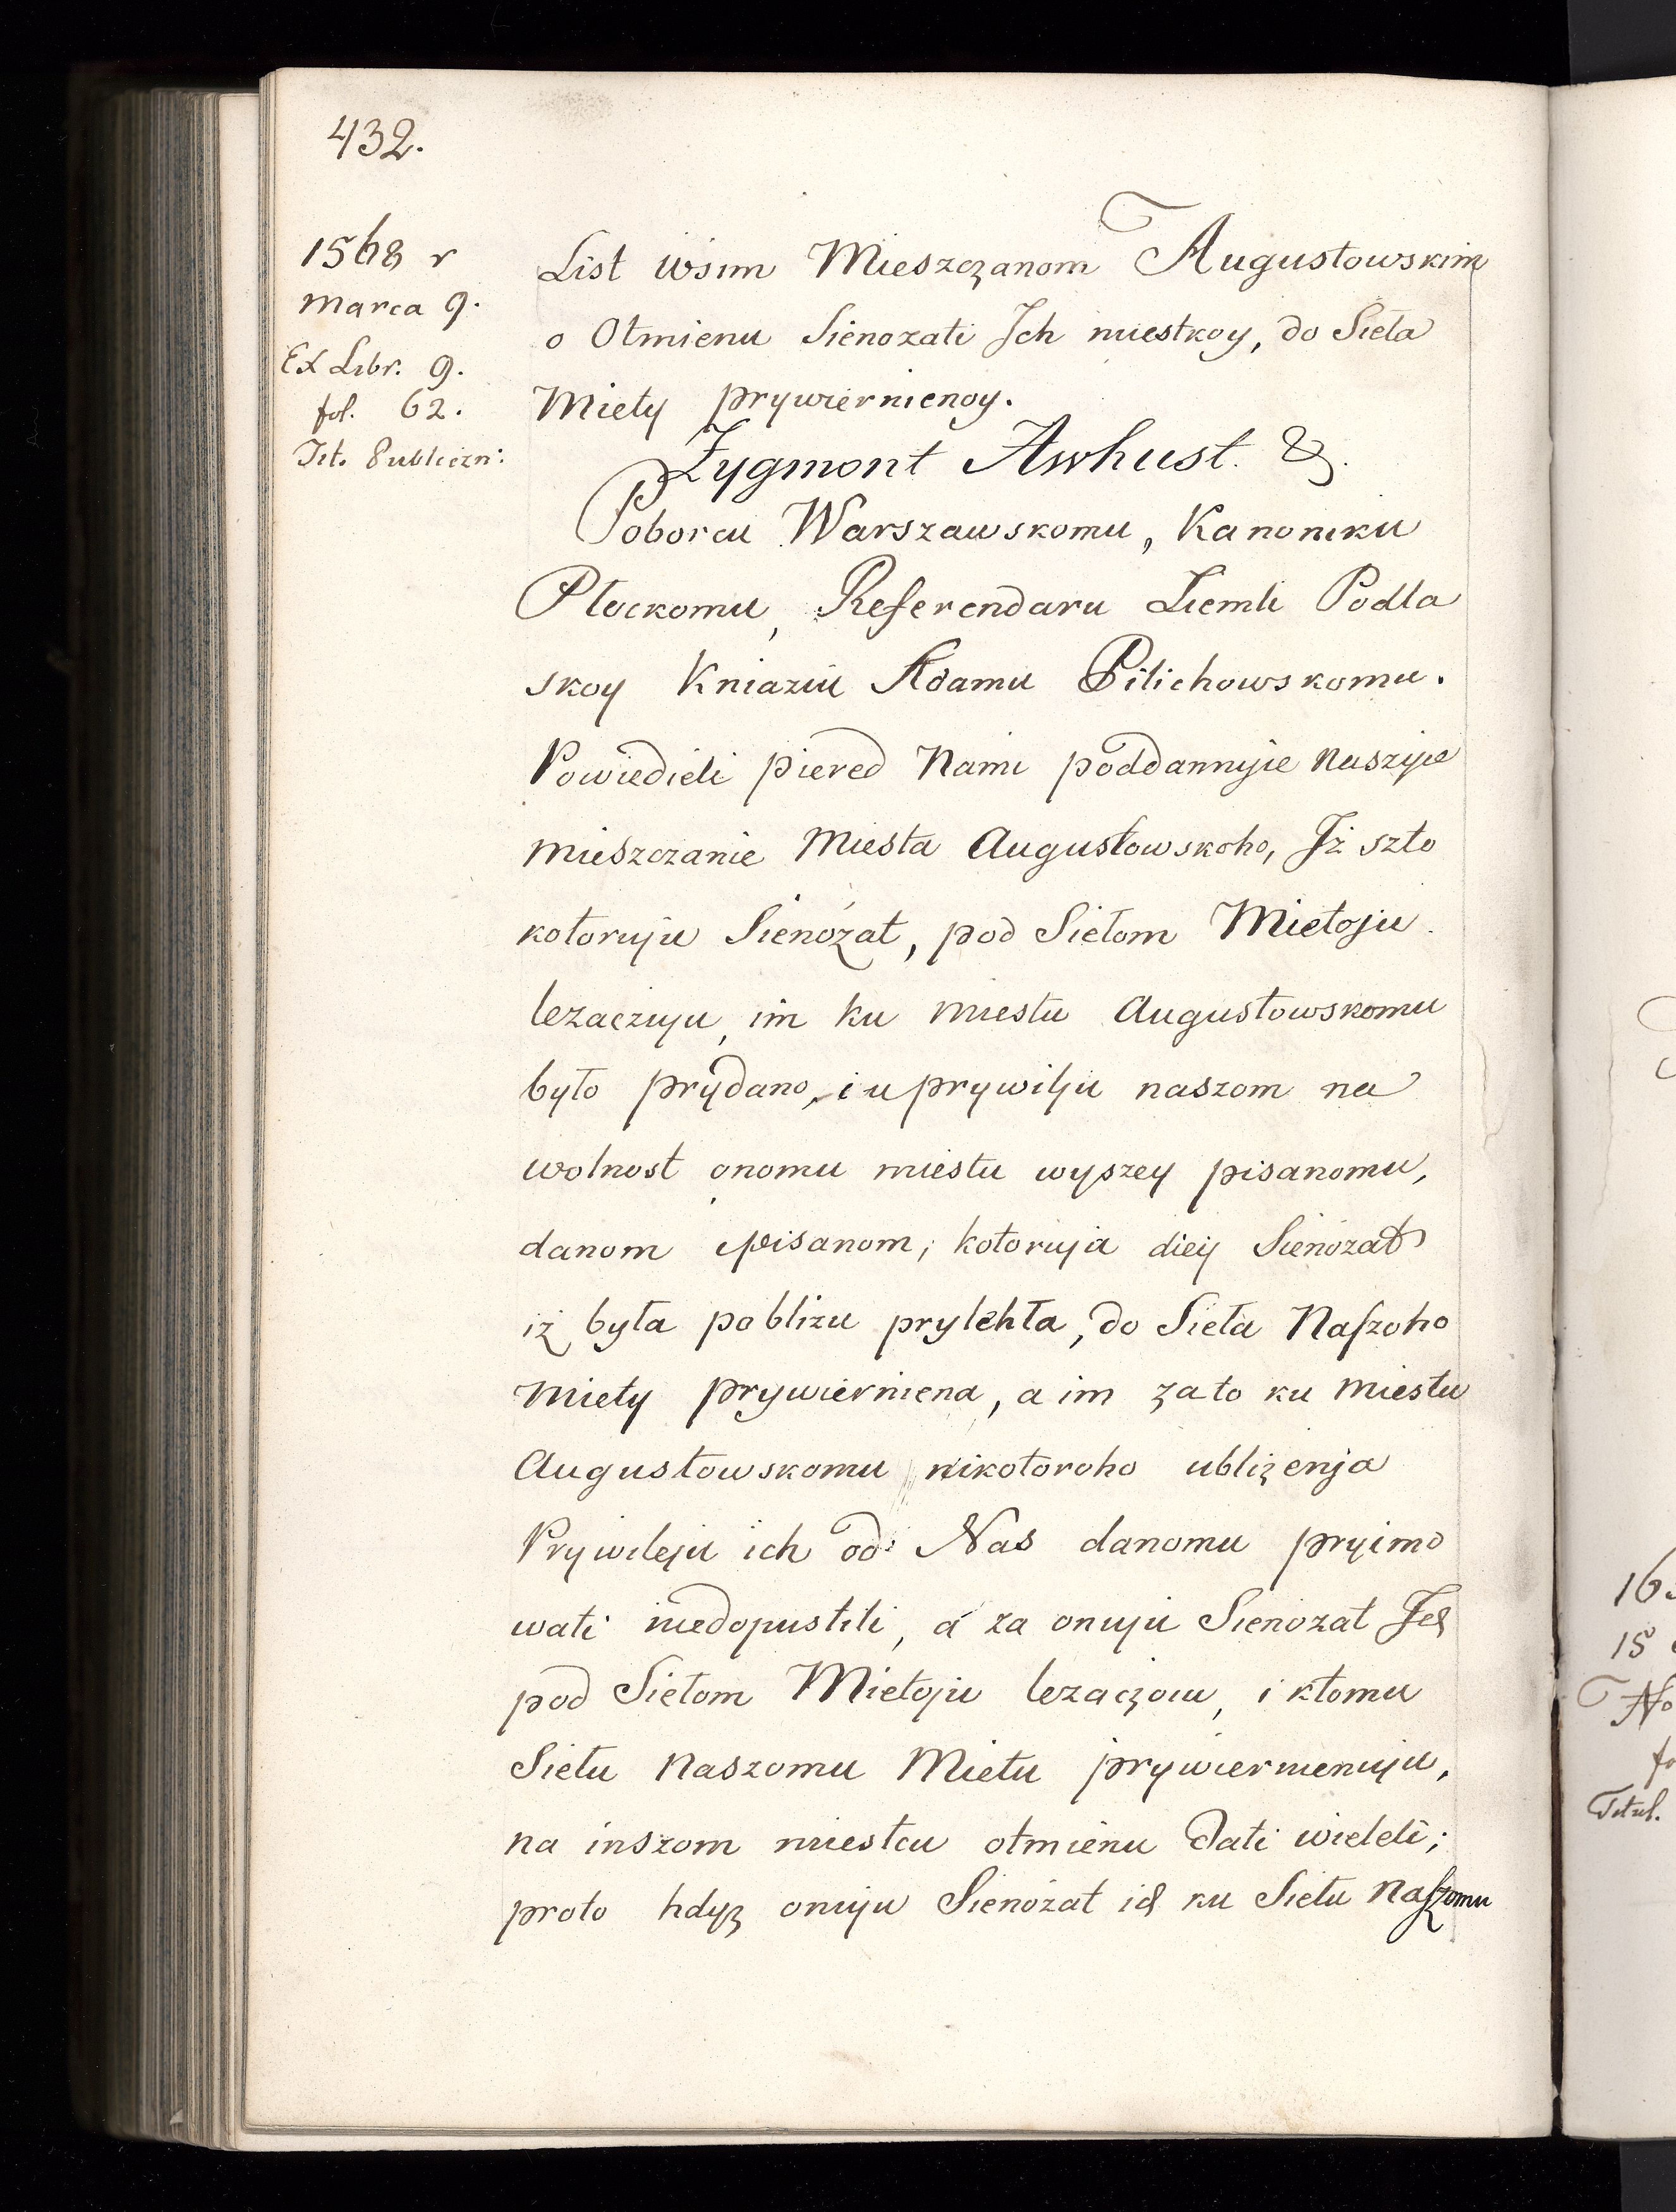 432.
1568 r
Marca 9.
Ex Libr. 9.
fol. 62.
Tit. Publiczn:
List wsim Mieszczanom Augustowskim
o Otmienu Sienozati Ich miestkoy, do Sieła
Miety prywiernienoy.
Zygmont Awhust. &.
Poborcu Warszawskomu, Kanoniku
Płockomu, Referendaru Ziemli Podla
skoy Kniaziu Adamu Pilichowskomu.
Powiedieli piered Nami poddannyie naszyie
mieszczanie Miesta Augustowskoho, Iż szto
kotoruju Sienożat, pod Siełom Miętoju
lezaczuju, im ku miestu Augustowskomu
było prydano, i u prywilju naszom na
wolnost onomu miestu wyszey pisanomu,
danom opisanom; kotoruja diey Sienożat
iż była poblizu prylehła, do Sieła Naszoho
Miety prywierniena, a im zato ku miestu
Augustowskomu nikotoroho ubliżenja
Prywileju ich od Nas danomu pryimo
wati niedopustili, a za onuju Sienozat Ich
pod Siełom Mietoju lezaczoiu, i ktomu
Siełu Naszomu Mietu prywiernienuju,
na inszom miestcu otmienu dati wieleli;
proto hdyż onuju Sienożat ich ku Siełu Naszomu
16
15
No
fo
Titul.